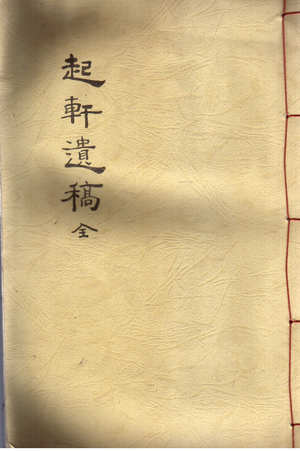 起軒遺稿全